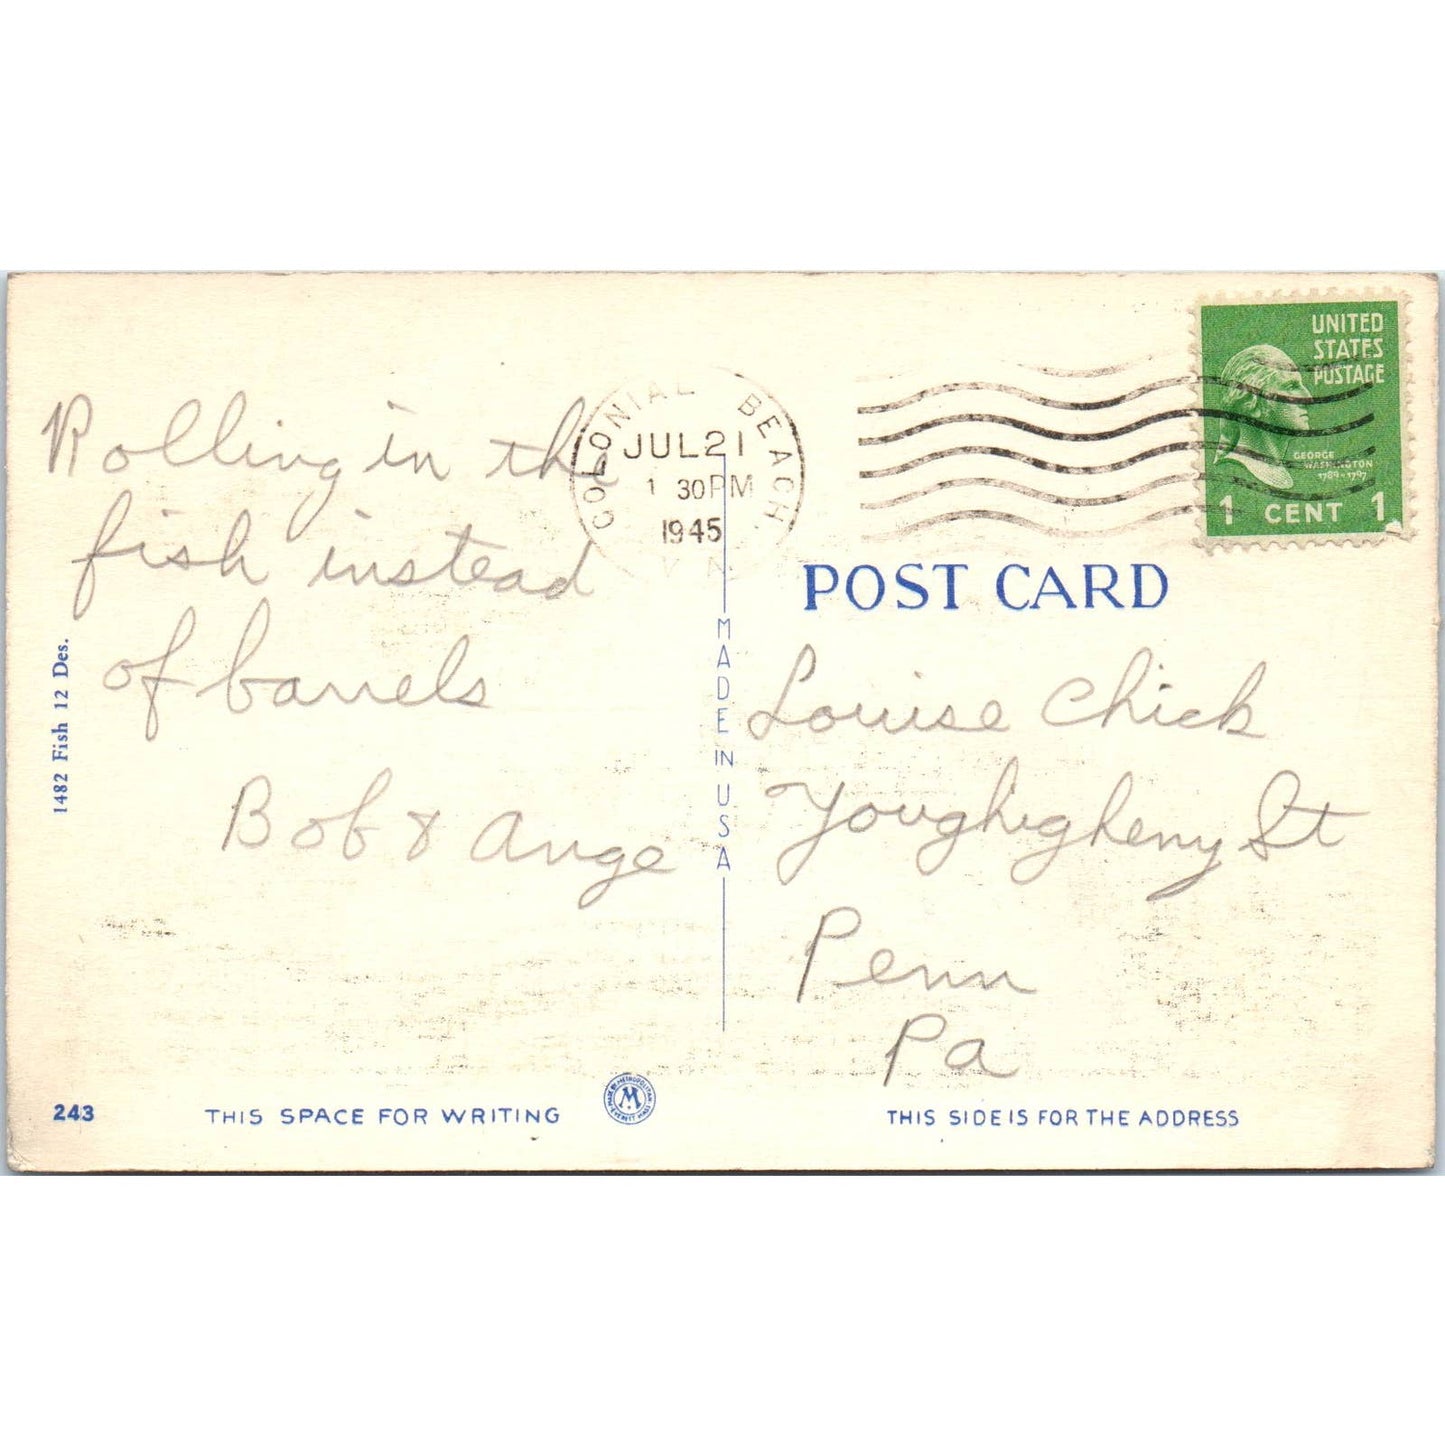 Rolling in the
fish instead
of barrels
Bob & Ange
1482 Fish 12 Des.
243
THIS SPACE FOR WRITING
COLONIAL BEACH,
JUL 21
1 30 PM
1945
MADE IN USA
MADE BY METROPOLITAN
M
EVERETT MASS
UNITED
STATES
POSTAGE
GEORGE
WASHINGTON
1789-1797
1 CENT 1
POST CARD
Louise Chick
Youghigheny St
Penn
Pa
THIS SIDE IS FOR THE ADDRESS